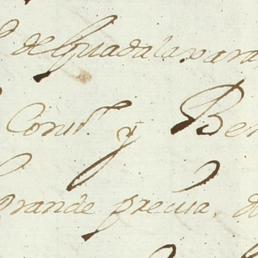 d de Guadalaxara
Conv.to y Ben
grande precisa. d